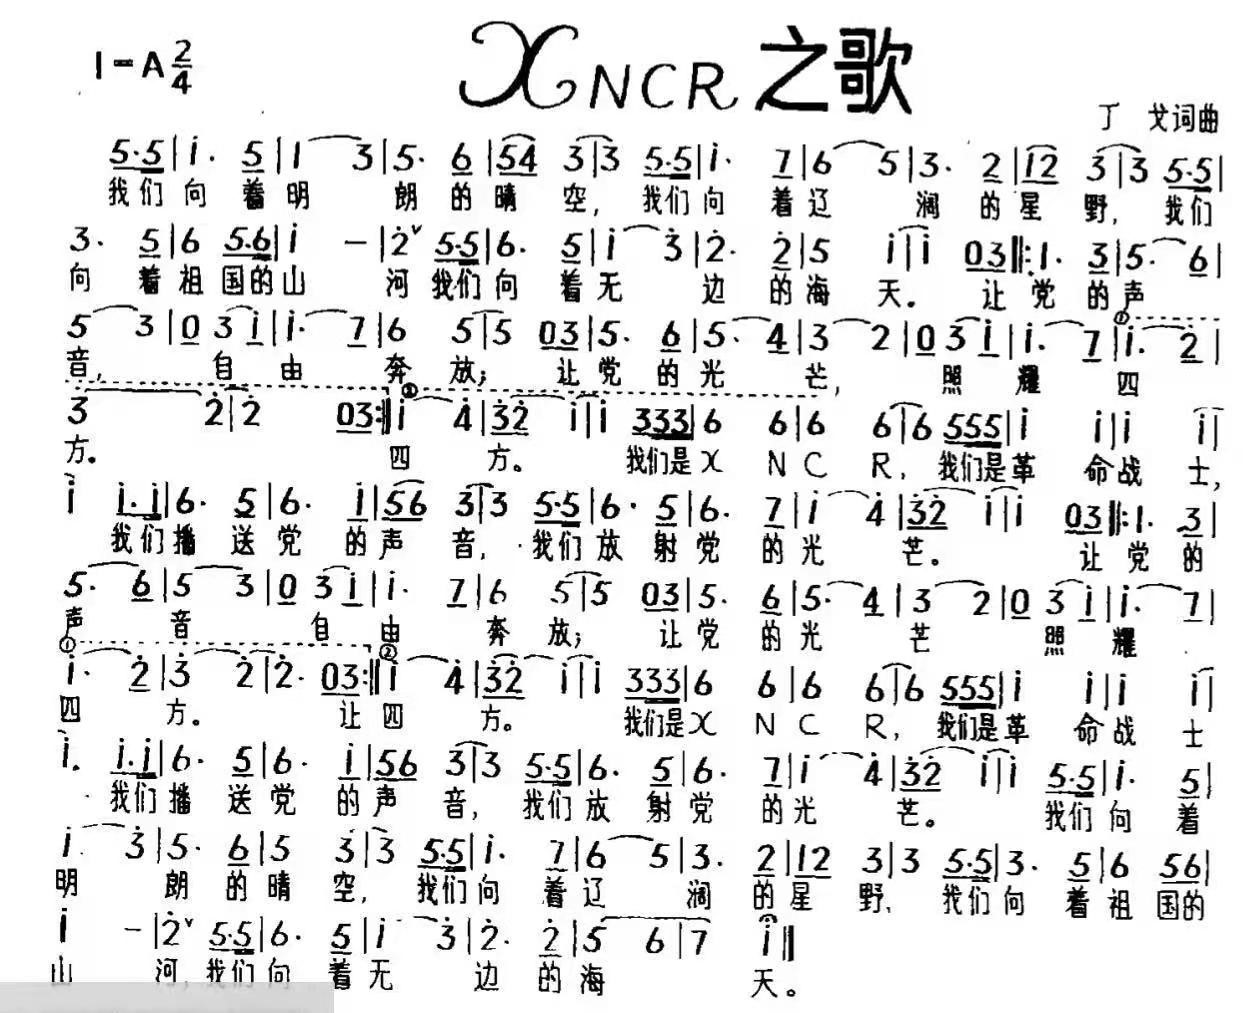 1=A 2/4
XNCR之歌
丁 戈词曲
5·5|i· 5|1 3|5· 6|54 3|3 5·5|i· 7|6 5|3· 2|12 3|3 5·5|
我们向着明 朗的晴空, 我们向 着辽 润的星野, 我们
3· 5|6 5·6|i —|2ˇ 5·5|6· 5|i 3|2· 2|5 i|i 03|:1· 3|5· 6|
向着祖国的山 河我们向着无 边的海天。 让党的声
5 3|0 3 i|i· 7|6 5|5 03|5· 6|5· 4|3 2|0 3 i|i· 7|i· 2|
音, 自由 奔放; 让党的光 芒, 照耀四
3 2|2 03:|i 4|32 i|i 333|6 6|6 6|6 555|i i|i i|
方。 四 方。 我们是X N C R, 我们是革 命战士,
i i·i|6· 5|6· i|56 3|3 5·5|6· 5|6· 7|i 4|32 i|i 03|:1· 3|
我们播送党的声音, 我们放射党的光 芒。 让党的
5· 6|5 3|0 3 i|i· 7|6 5|5 03|5· 6|5· 4|3 2|0 3 i|i· 7|
声 音 自由 奔放; 让党的光 芒 照耀
① ②
i· 2|3· 2|2· 03:|i 4|32 i|i 333|6 6|6 6|6 555|i i|i i|
四 方。 让四 方。 我们是X N C R, 我们是革 命战士
i· i·i|6· 5|6· i|56 3|3 5·5|6· 5|6· 7|i· 4|32 i|i 5·5|i· 5|
我们播送党的声音, 我们放射党的光 芒。 我们向着
i· 3|5· 6|5 3|3 5·5|i· 7|6 5|3· 2|12 3|3 5·5|3· 5|6 56|
明 朗的晴空, 我们向着辽 润的星野, 我们向着祖国的
i —|2ˇ 5·5|6· 5|i· 3|2· 2|5 6|7 i||
山 河, 我们向着无 边的海 天。